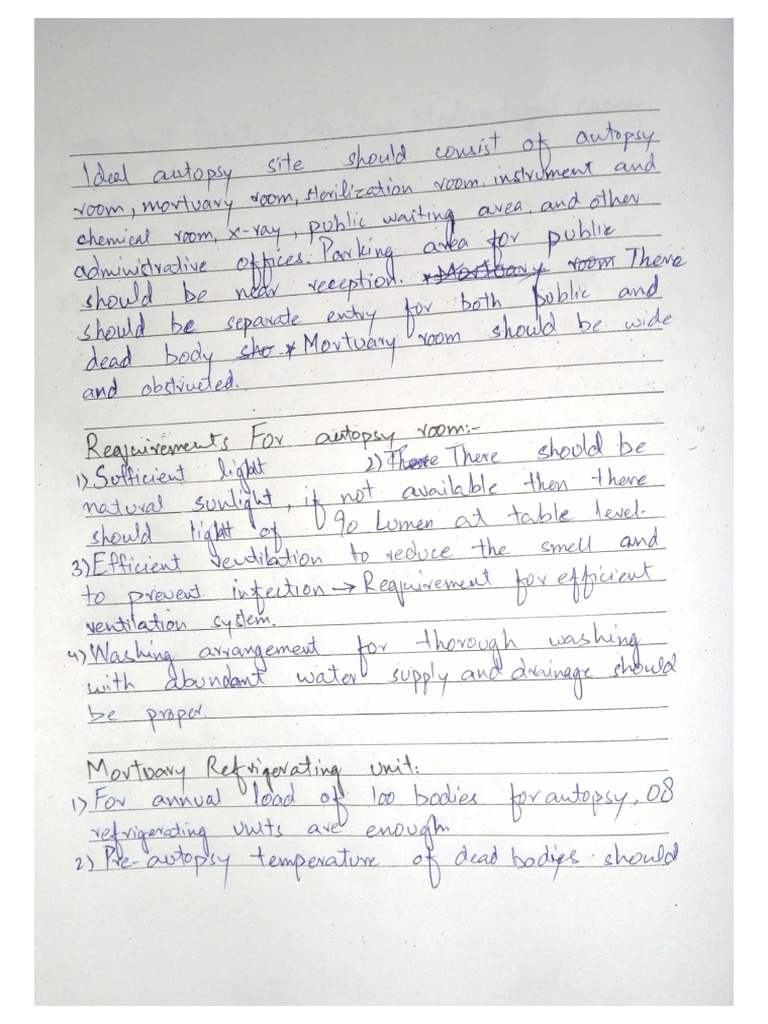 Ideal autopsy site should consist of autopsy
room, mortuary room, sterilization room, instrument and
chemical room, x-ray, public waiting area, and other
administrative offices. Parking area for public
should be near reception. Mortuary room There
should be separate entry for both public and
dead body sho * Mortuary room should be wide
and obstructed.
Requirements For autopsy room:-
1) Sufficient light 2) There There should be
natural sunlight, if not available then there
should light of 90 Lumen at table level.
3) Efficient ventilation to reduce the smell and
to prevent infection → Requirement for efficient
ventilation system.
4) Washing arrangement for thorough washing
with abundant water supply and drainage should
be proper.
Mortuary Refrigerating unit:
1) For annual load of 100 bodies for autopsy, 08
refrigerating units are enough
2) Pre-autopsy temperature of dead bodies should